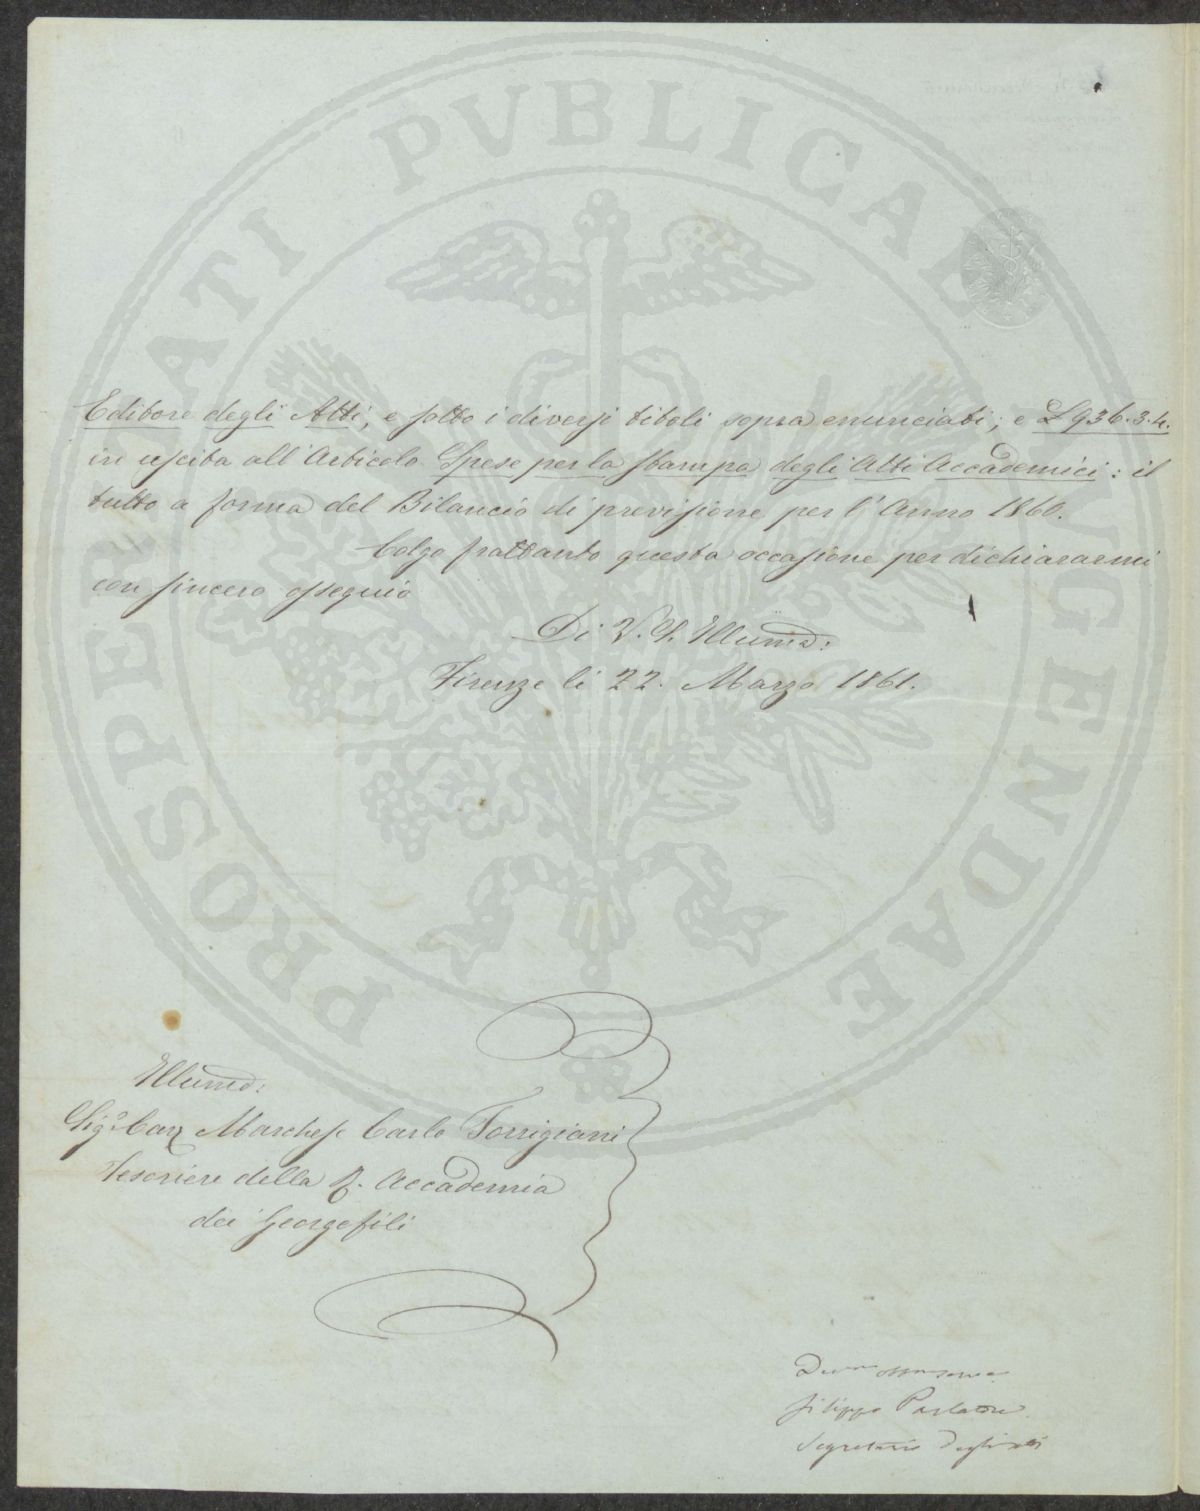 PROSPERITATI PVBLICAE AVGENDAE
Editore degli Atti, e sotto i diversi titoli sopra enunciati; e £ 936.3.4.
in uscita all'Articolo Spese per la stampa degli Atti Accademici: il
tutto a forma del Bilancio di previsione per l'Anno 1860.
Colgo frattanto questa occasione per dichiararmi
con sincero ossequio
Di V. S. Illuma:
Firenze li 22. Marzo 1861.
Illumo:
Sigr. Cav. Marchese Carlo Torrigiani
Tesoriere della R. Accademia
dei Georgofili
Filippo Parlatore
Segretario degli Atti